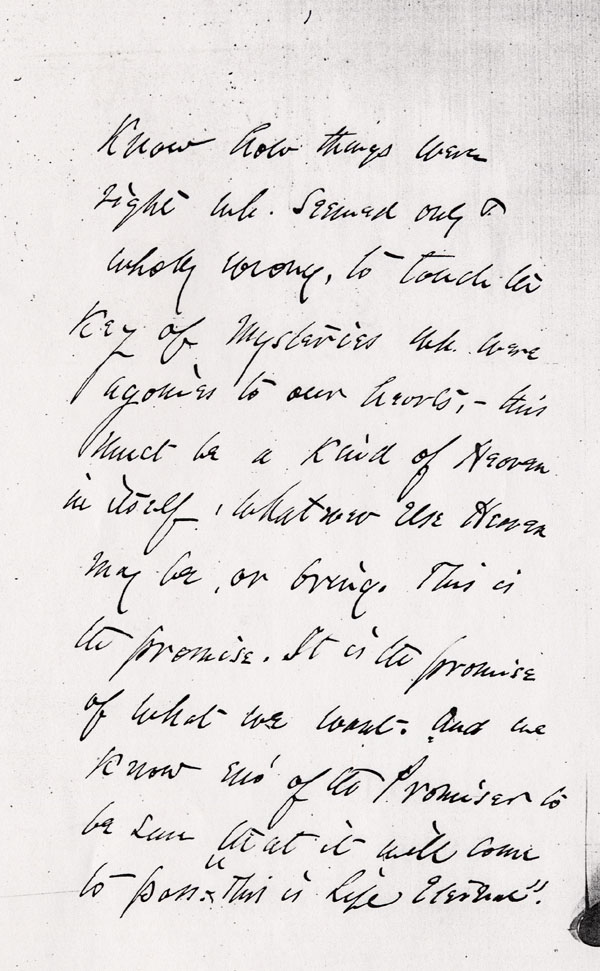 Know how things were
right wh. seemed only
wholly wrong, to touch the
Key of Mysteries wh. were
agonies to our hearts, - this
must be a kind of Heaven
in itself, whatever else Heaven
may be, or bring. This is
the promise. It is the promise
of what we want. And we
know eno' of the Promiser to
be sure that it will come
to pass. "This is Life Eternal".